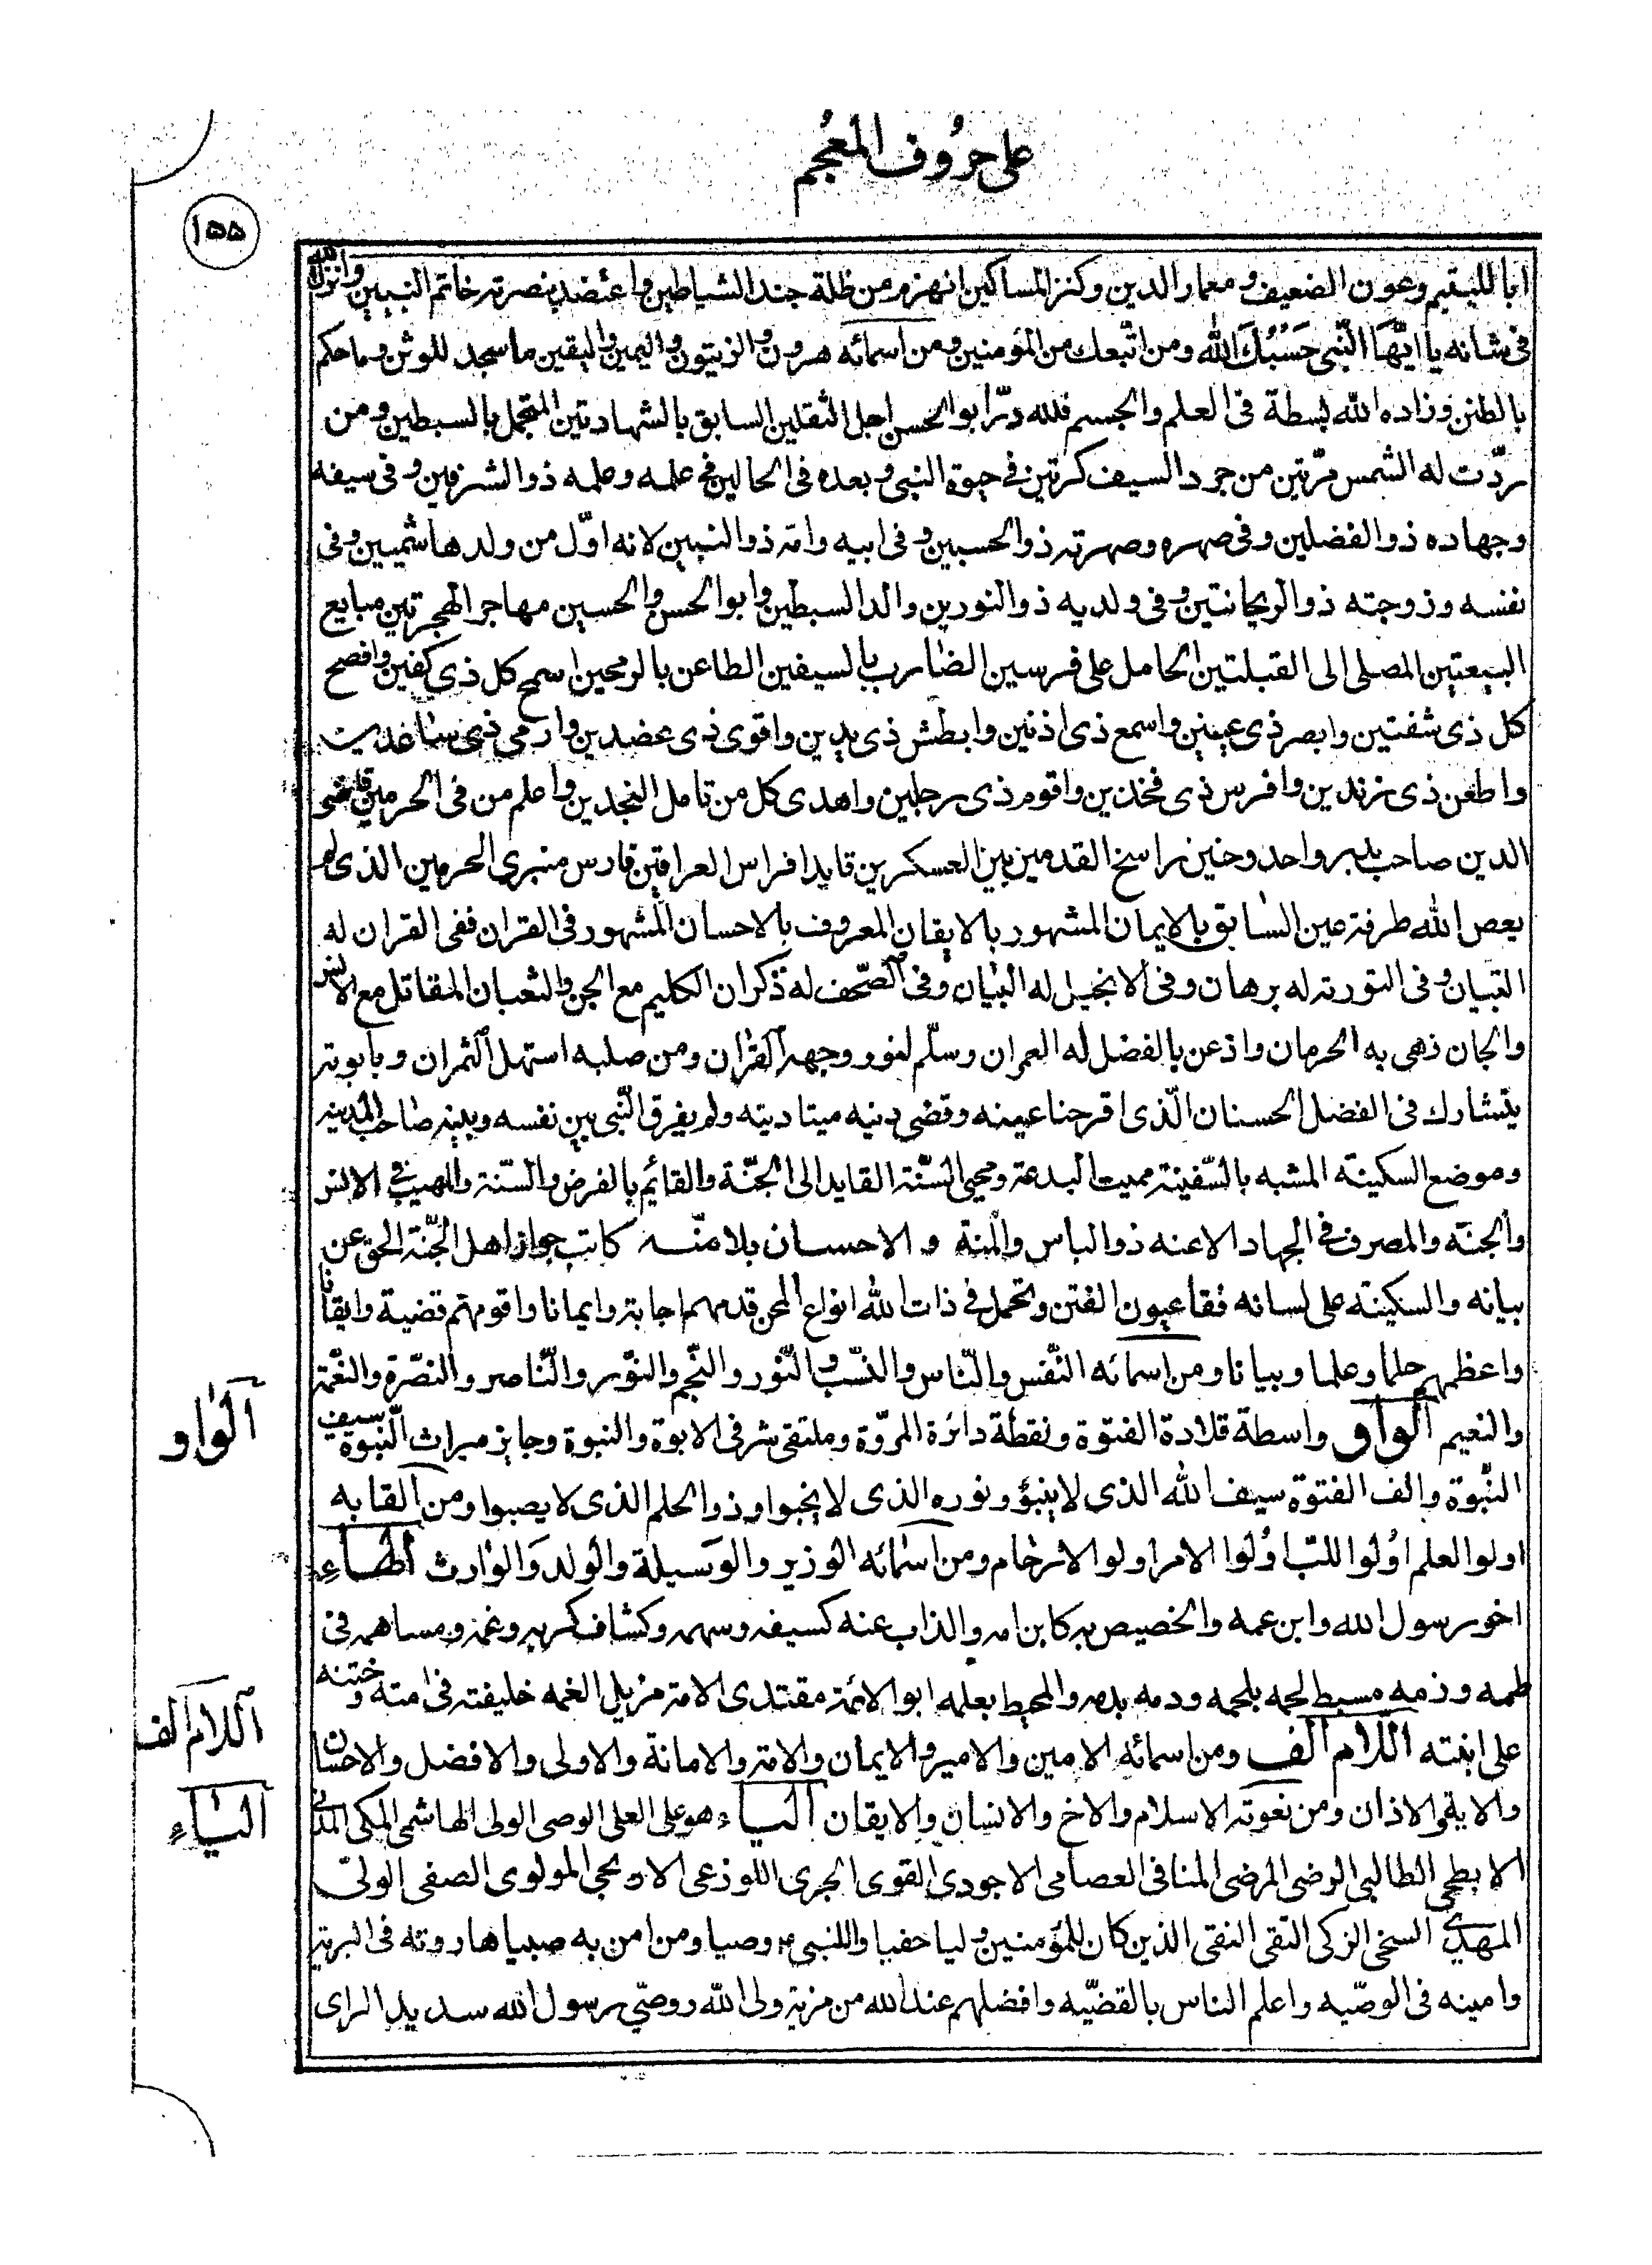 على حروف المعجم
١٥٥
ابا لليتيم وعون الضعيف ومعمار الدين وكنز المساكين انهزم من ظلة جند الشياطين واعتضد بنصرته خاتم النبيين وانزل الله
فى شانه يا ايّها النّبى حَسْبُكَ الله ومن اتّبعك من المؤمنين ومن اسمائه هرون والزيتون واليمين واليقين ما سجد للوثن وما حكم
بالظن وزاده الله بسطة فى العلم والجسم فلله درّ ابو الحسن اجل الثقلين السابق بالشهادتين المتجمل بالسبطين ومن
ردّت له الشمس مرّتين من جرد السيف كرتين فى حيوة النبى وبعده فى الحالين فى علمه وحلمه ذو الشرفين وفى سيفه
وجهاده ذو الفضلين وفى صهره وصهرته ذو الحسبين وفى ابيه وامّه ذو النسبين لانه اوّل من ولد هاشميين وفى
نفسه وزوجته ذو الريحانتين وفى ولديه ذو النورين والد السبطين وابو الحسن والحسين مهاجر الهجرتين مبايع
البيعتين المصلى الى القبلتين الحامل على فرسين الضارب بالسيفين الطاعن بالرمحين اسمح كل ذى كفين وافصح
كل ذى شفتين وابصر ذى عينين واسمع ذى اذنين وابطش ذى يدين واقوى ذى عضدين وارمى ذى ساعدين
واطعن ذى زندين وافرس ذى فخذين واقوم ذى رجلين واهدى كل من تامل النجدين واعلم من فى الحرمين قاضى
الدين صاحب بدر واحد وحنين راسخ القدمين بين العسكرين قايد افراس العراقين فارس منبرى الحرمين الذى لم
يعص الله طرفة عين السّابق بالايمان المشهور بالايقان المعروف بالاحسان المشهور فى القران ففى القران له
التبيان وفى التورية له برهان وفى الانجيل له البيان وفى الصّحف له ذكران الكليم مع الجن والثعبان المقاتل مع الانس
والجان ذهى به الحرمان واذعن بالفضل له العمران وسلّم لنور وجهه القران ومن صلبه استهل الثمران وبابوته
يتشارك فى الفضل الحسنان الّذى اقر حنا عينه وقضى دينه ميتا ديته ولم يفرق النّبى بين نفسه وبينه صاحب المدينه
وموضع السكينة المشبه بالسّفينة مميت البدعة ومحيى السّنّة القايد الى الجنّة والقائم بالفرض والسّنة والمهيب فى الانس
والجنّة والمصرف فى الجهاد الاعنه ذو الباس والمنة و الاحسان بلا منّه كاتب جواز اهل الجنّة الحق عن
بيانه والسكينة على لسانه فقأ عيون الفتن وتحمل فى ذات الله انواع المحن قدمهم اجابة وايمانا واقومهم قضية وايقانا
واعظمهم حلما وعلما وبيانا ومن اسمائه النّفس والنّاس والنسّب والنّور والنّجم والنوّر والنّاصر والنصّرة والنّعمة
والنعيم الواو واسطة قلادة الفتوّة ونقطة دائرة المروّة وملتقى شرفى الابوة والنبوة وحايز ميراث النّبوة سيف
النّبوة والف الفتوّة سيف الله الذى لا ينبؤ ونوره الذى لا يخبوا وذو الحلم الذى لا يصبوا ومن القابه
اولوا العلم اولوا اللبّ اولوا الامر اولو الارحام ومن اسمائه الوزير والوسيلة والولد والوارث الهاء
اخو رسول الله وابن عمه والخصيص به كابن امه والذاب عنه كسيفه وسهمه وكشاف كربه وغمه ومساهمه فى
طمه ورمه مسيط لحمه بلحمه ودمه بدمه والمحيط بعلمه ابو الائمة مقتدى الامة مزيل الغمه خليفته فى امته وختنه
على ابنته اللام الف ومن اسمائه الامين والامير والايمان والامة والامانة والاولى والافضل والاحسان
والايلى الاذان ومن نعوته الاسلام والاخ والانسان والايقان الياء هو على العلى الوصى الولى الهاشمى المكى المدنى
الابطحى الطالبى الرضى المرضى المنافى العصامى الاجودى القوى الجرى اللوذعى الاريحى المولوى الصفى الولىّ
المهدىّ السخى الزكى التقى النقى الذين كان للمؤمنين وليا حفيا وللنبى م وصيا ومن امن به صبيا هارونه فى البرية
وامينه فى الوصّيه واعلم الناس بالقضيّه وافضلهم عند الله من مزية ولى الله ووصىّ رسول الله سديد الراى
الواو
اللام الف
الياء